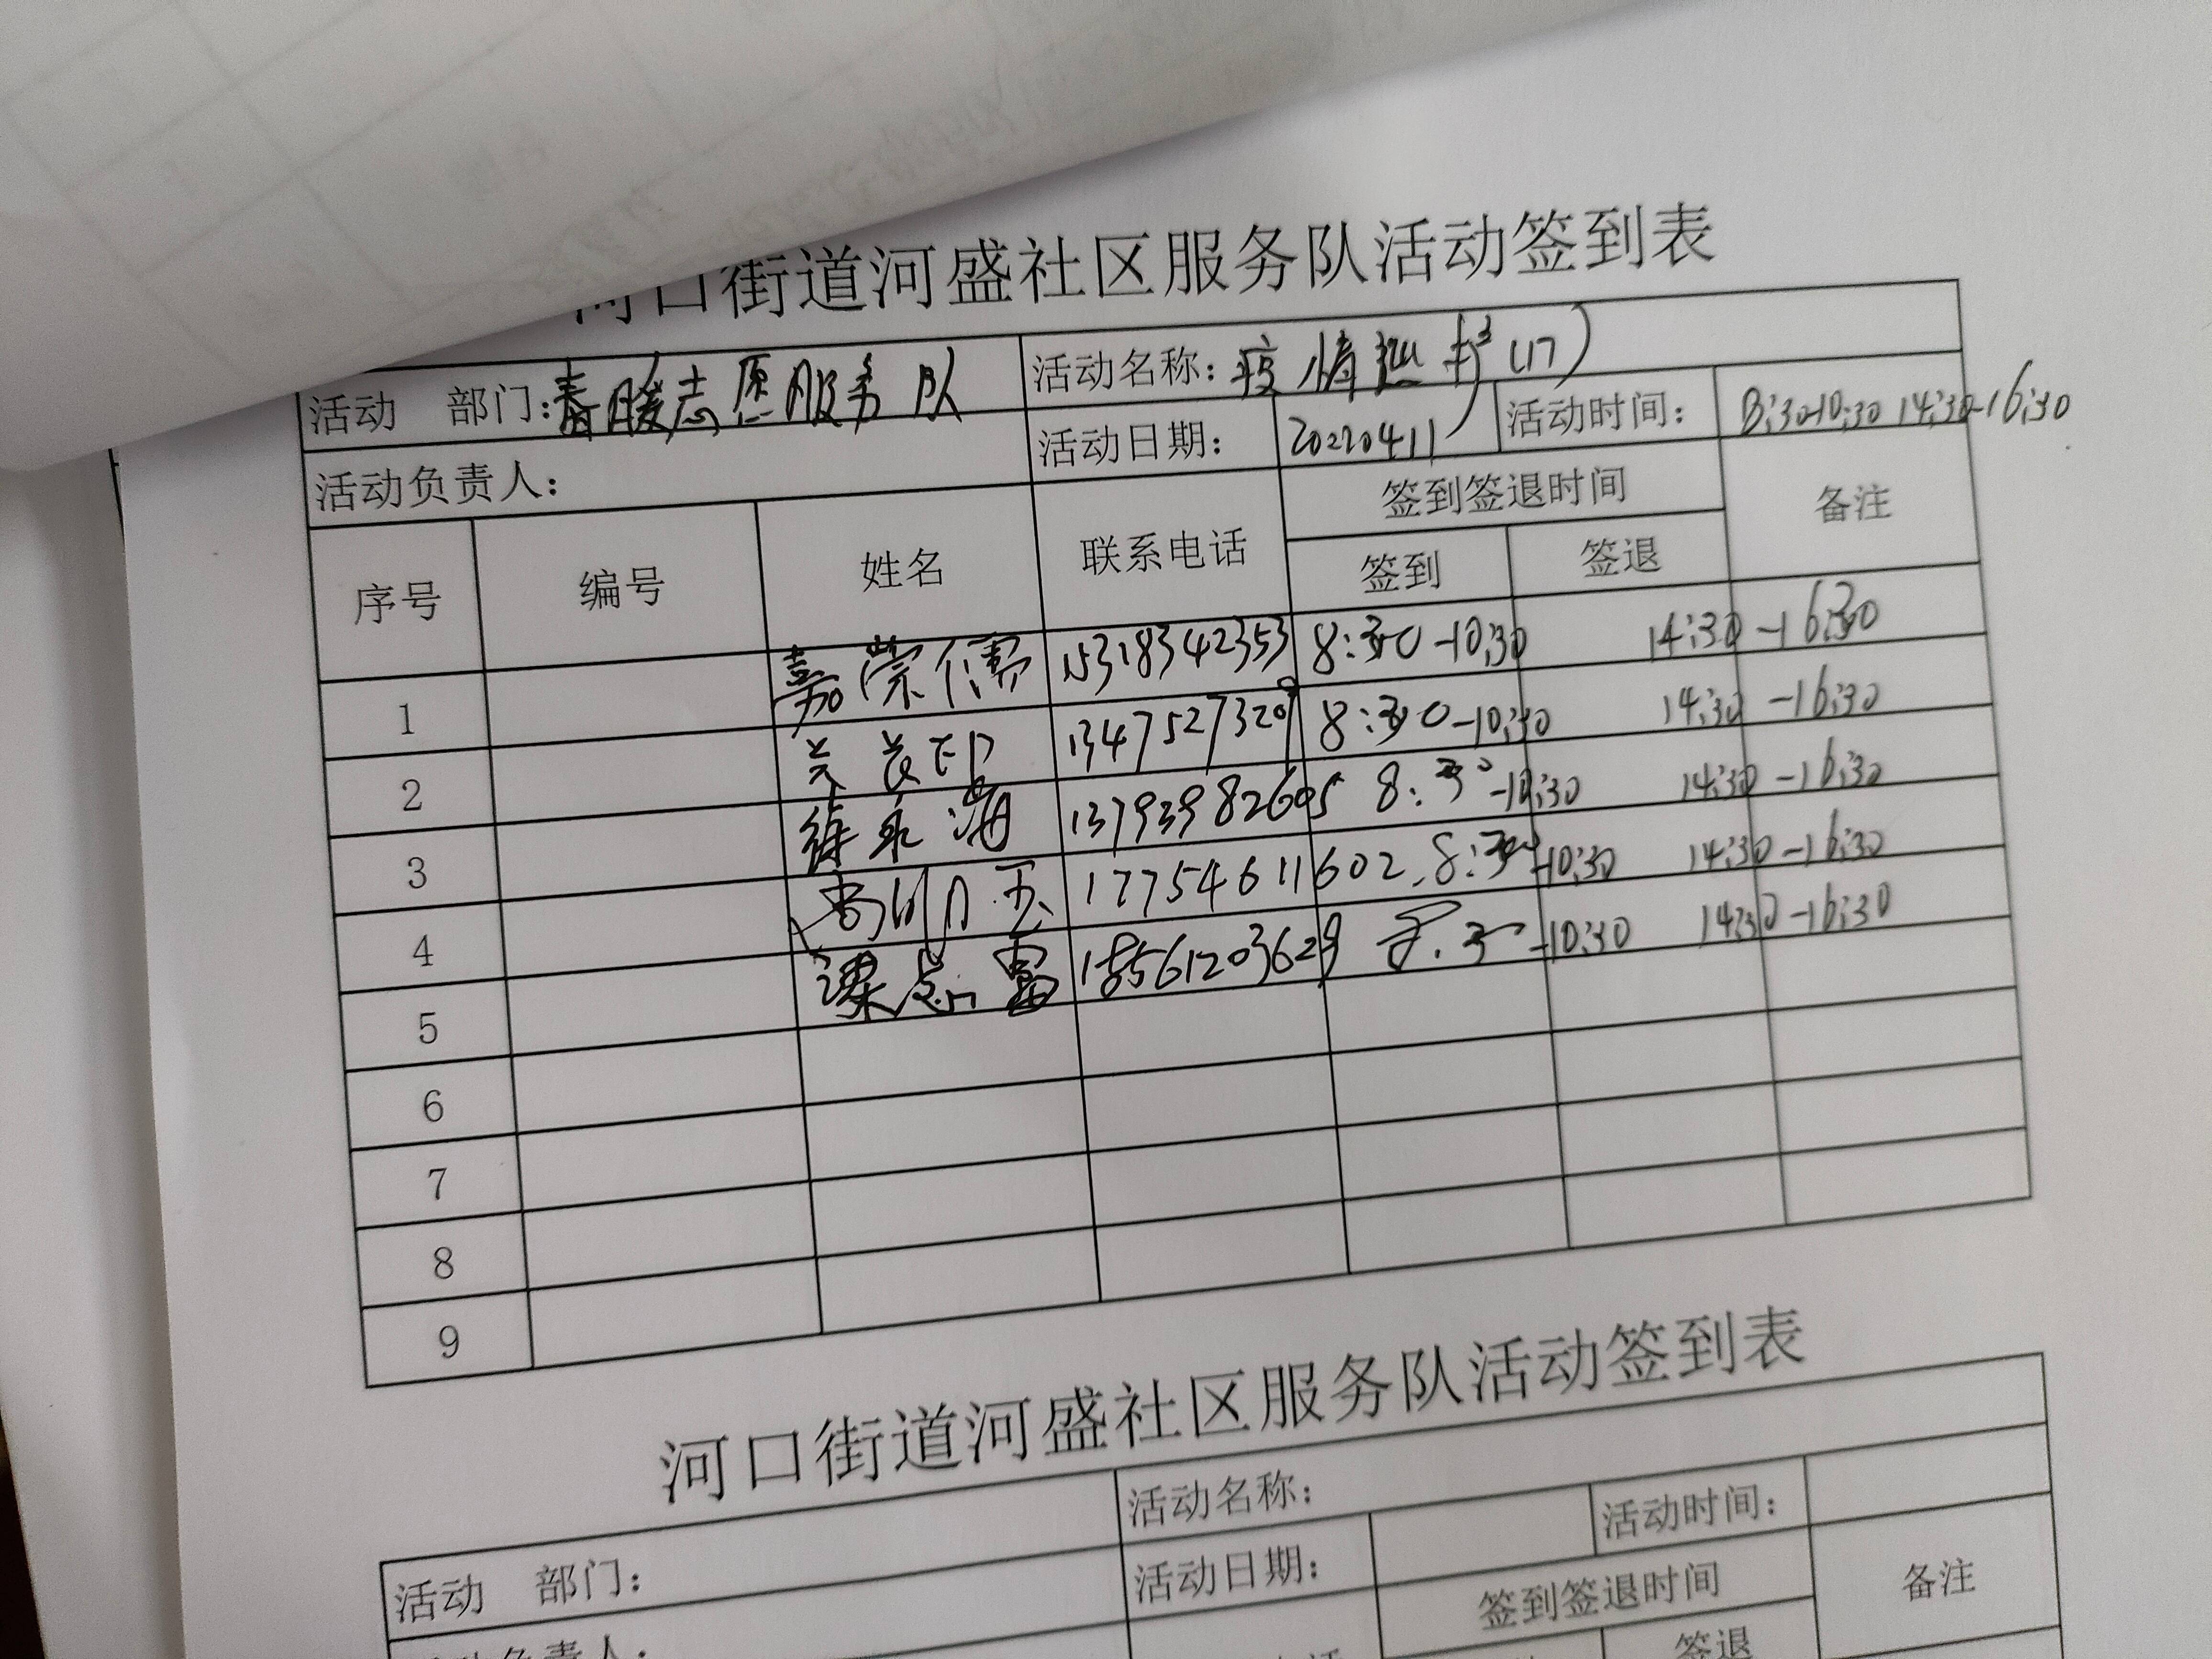 河口街道河盛社区服务队活动签到表
活动 部门:春暖志愿服务队 活动名称:疫情巡查(17)
活动负责人: 活动日期: 20220411 活动时间: 8:30-10:30 14:30-16:30
序号 编号 姓名 联系电话 签到签退时间 备注
签到 签退
1 15318342353 8:30-10:30 14:30-16:30
2 13475273209 8:30-10:30 14:30-16:30
3 徐永海 13793982605 8:30-10:30 14:30-16:30
4 17754611602 8:30-10:30 14:30-16:30
5 梁志富 18561203629 8:30-10:30 14:30-16:30
6
7
8
9
河口街道河盛社区服务队活动签到表
活动 部门: 活动名称:
活动日期: 活动时间:
签到签退时间 备注
签退